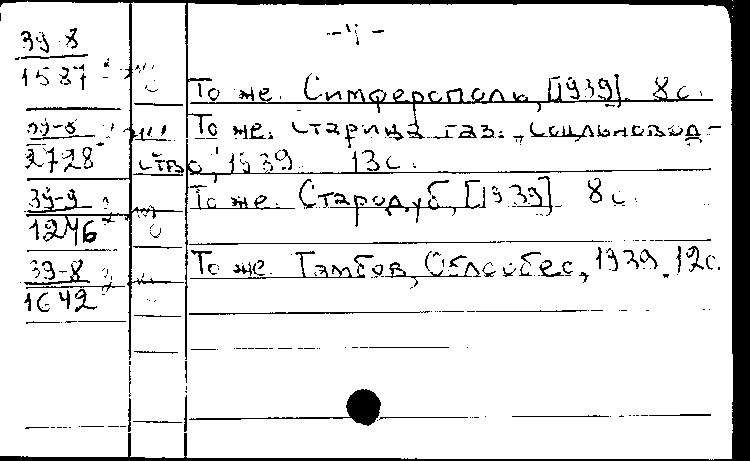 -4-
39-8
1587
То же. Симферополь, [1939]. 8 с.
39-8
2728
То же. Старица газ. „Сацльновод-
ство", 1939. 13 с.
39-9
1246
То же. Стародуб, [1939]. 8 с.
39-8
1642
То же. Тамбов, Облсобес, 1939. 12с.